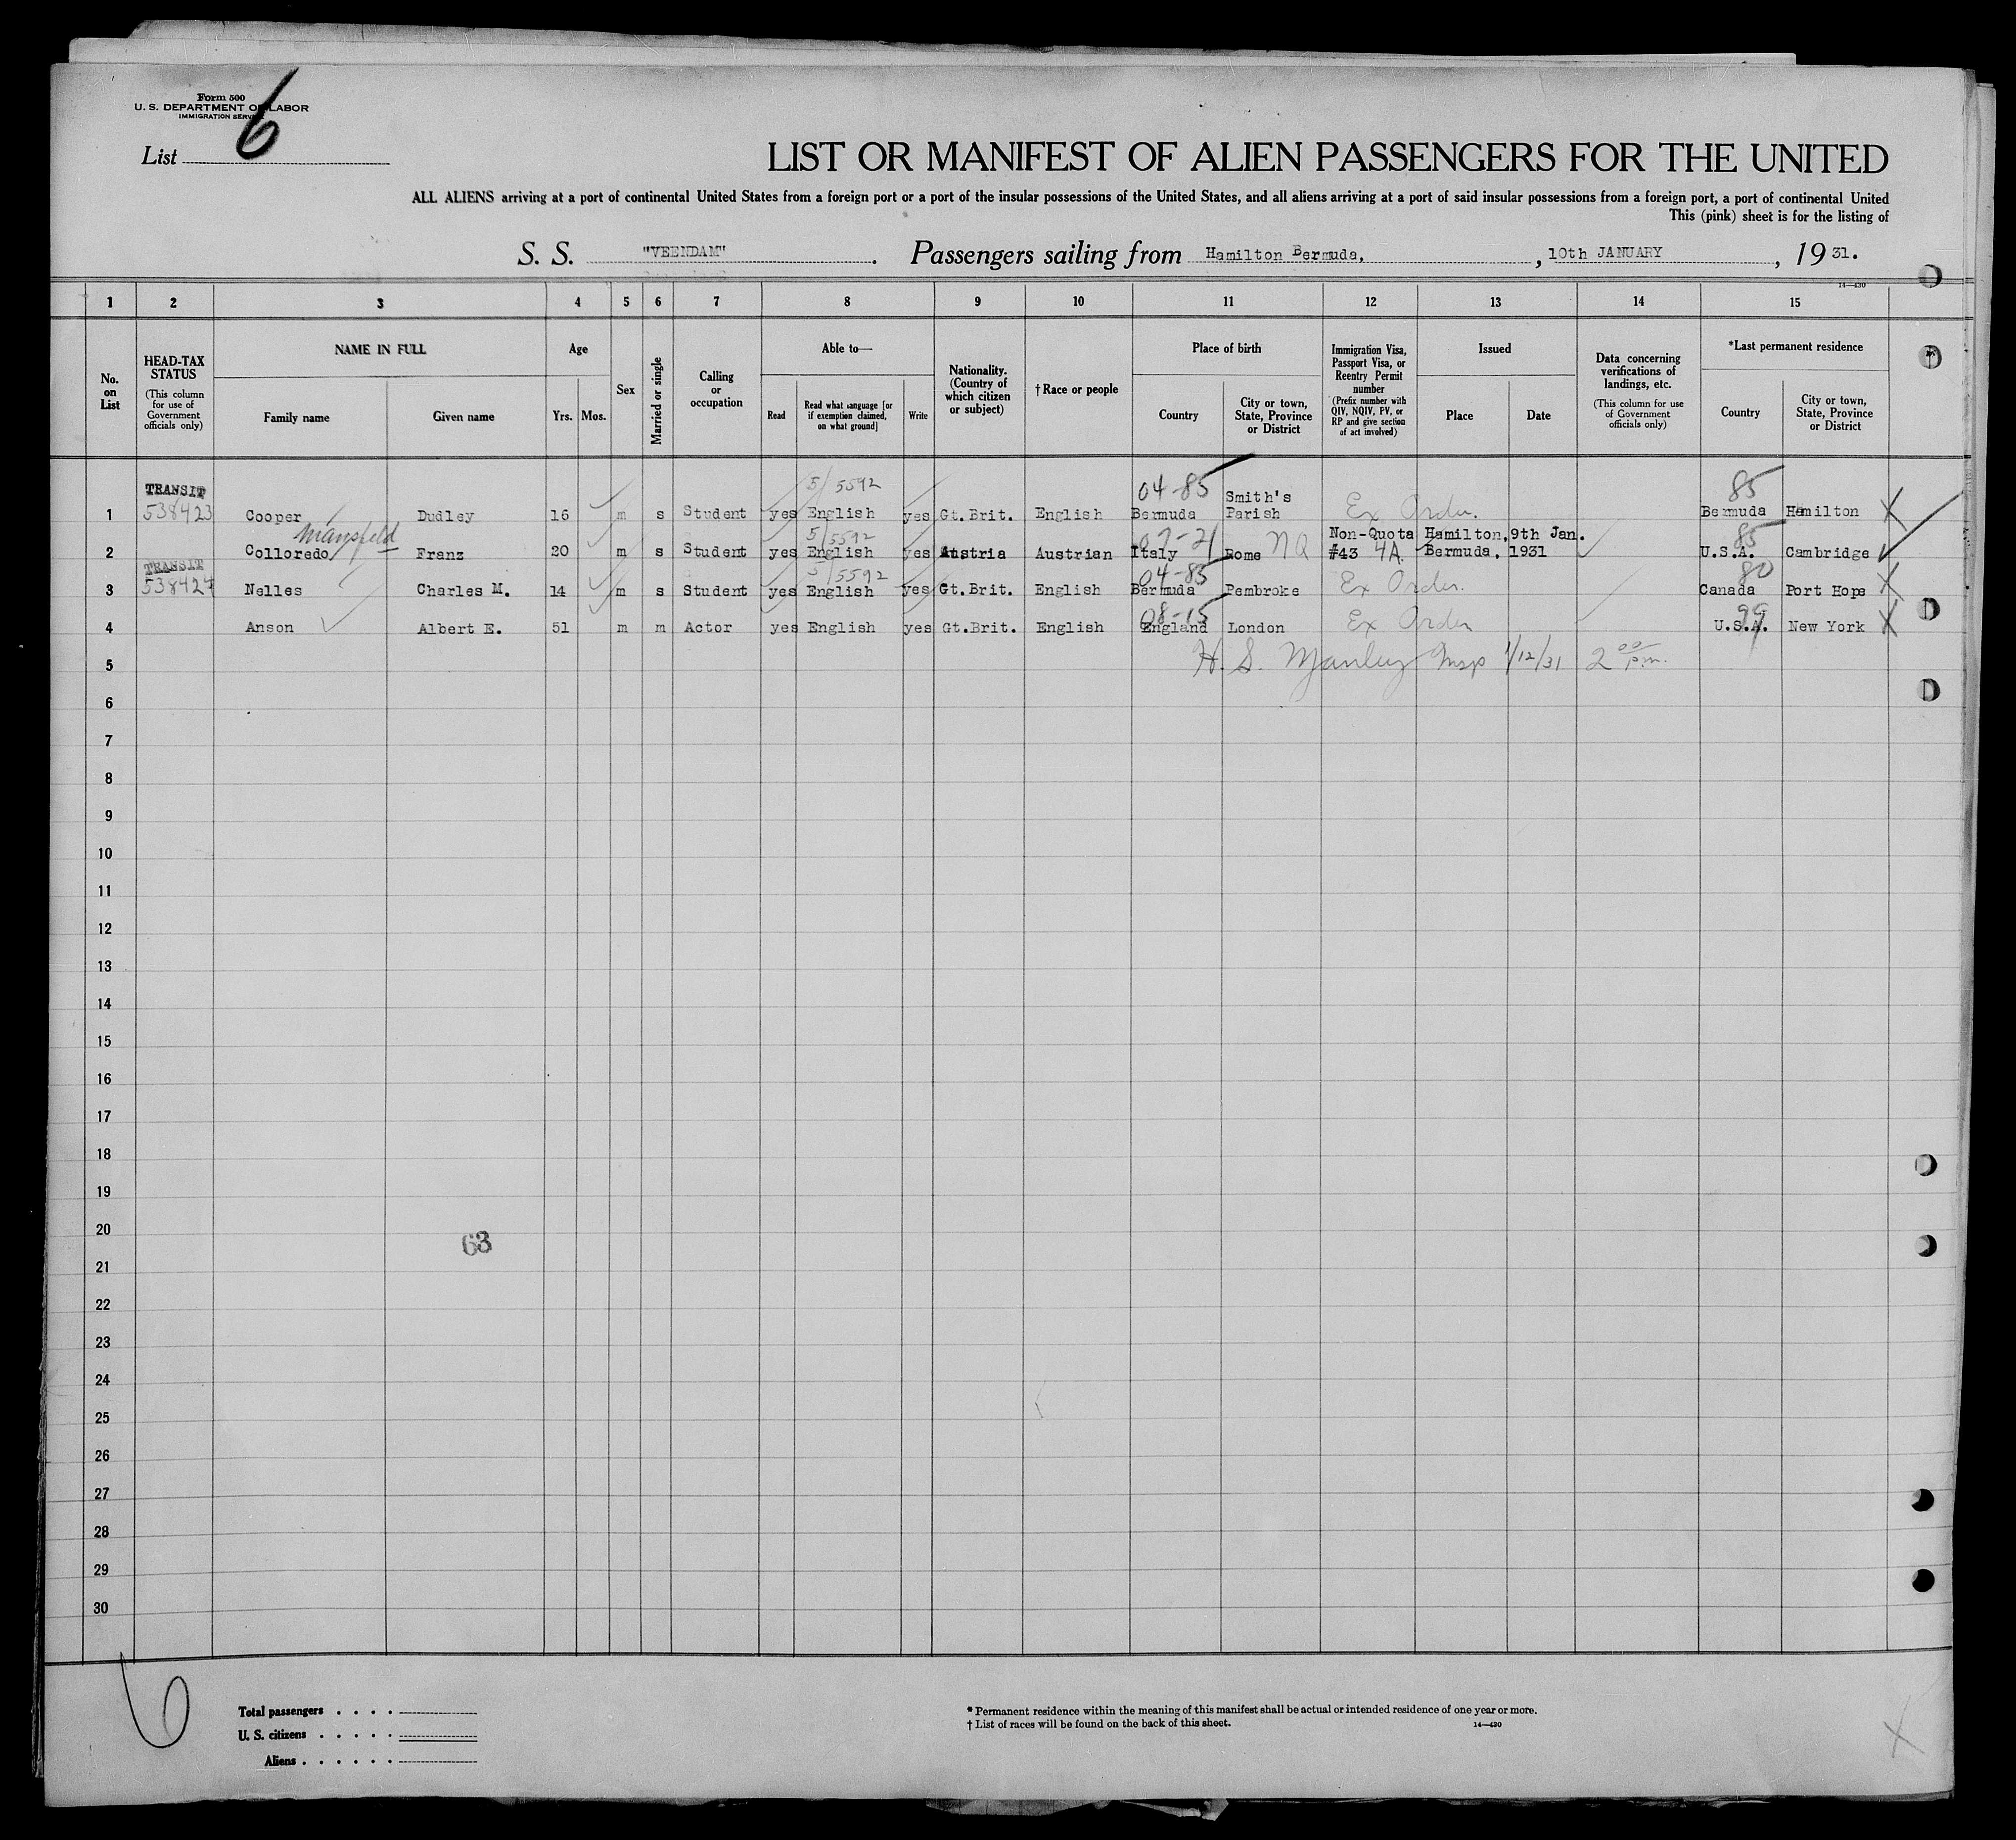 Form 500
U. S. DEPARTMENT OF LABOR
IMMIGRATION SERVICE
List 6
LIST OR MANIFEST OF ALIEN PASSENGERS FOR THE UNITED
ALL ALIENS arriving at a port of continental United States from a foreign port or a port of the insular possessions of the United States, and all aliens arriving at a port of said insular possessions from a foreign port, a port of continental United
This (pink) sheet is for the listing of
S. S. "VEENDAM" . Passengers sailing from Hamilton Bermuda, , 10th JANUARY , 19 31.
14—430
1 2 3 4 5 6 7 8 9 10 11 12 13 14 15
No. on List
HEAD-TAX STATUS (This column for use of Government officials only)
NAME IN FULL Family name Given name
Age Yrs. Mos.
Sex
Married or single
Calling or occupation
Able to— Read Read what language [or if exemption claimed, on what ground] Write
Nationality. (Country of which citizen or subject)
†Race or people
Place of birth Country City or town, State, Province or District
Immigration Visa, Passport Visa, or Reentry Permit number (Prefix number with QIV, NQIV, PV, or RP and give section of act involved)
Issued Place Date
Data concerning verifications of landings, etc. (This column for use of Government officials only)
*Last permanent residence Country City or town, State, Province or District
TRANSIT 5/5592 04-85 Smith's 85
1 538423 Cooper Dudley 16 m s Student yes English yes Gt.Brit. English Bermuda Parish Ex Order. Bermuda Hamilton X
Mansfeld 5/5592 Non-Quota Hamilton, 9th Jan. 85
2 Colloredo Franz 20 m s Student yes English yes Austria Austrian Italy Rome NQ #43 4A. Bermuda, 1931 U.S.A. Cambridge
TRANSIT 5/5592 04-85 80
3 538424 Nelles Charles M. 14 m s Student yes English yes Gt.Brit. English Bermuda Pembroke Ex Order. Canada Port Hope X
08-15 99
4 Anson Albert E. 51 m m Actor yes English yes Gt.Brit. English England London Ex Order U.S.A. New York X
5 H. S. Manley Insp 1/12/31 2 00 p.m.
6
7
8
9
10
11
12
13
14
15
16
17
18
19
20
63
21
22
23
24
25
26
27
28
29
30
6
Total passengers . . . .
U. S. citizens . . . . .
Aliens . . . . . .
* Permanent residence within the meaning of this manifest shall be actual or intended residence of one year or more.
† List of races will be found on the back of this sheet. 14—430
X